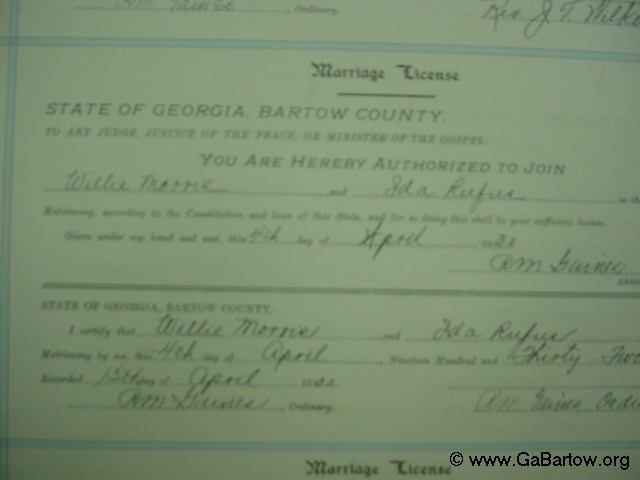 RM Gaines , Ordinary. Rev. J. T. Wilk
Marriage License
STATE OF GEORGIA, BARTOW COUNTY.
TO ANY JUDGE, JUSTICE OF THE PEACE, OR MINISTER OF THE GOSPEL:
YOU ARE HEREBY AUTHORIZED TO JOIN
Willie Morris and Ida Rufus in th
Matrimony, according to the Constitution and laws of this State, and for so doing this shall be your sufficient license.
Given under my hand and seal, this 4th day of April 1932
RM Gaines
ORDI
STATE OF GEORGIA, BARTOW COUNTY.
I certify that Willie Morris and Ida Rufus
Matrimony by me, this 4th day of April , Nineteen Hundred and Thirty-Two
Recorded 13th day of April 1932
RM Gaines , Ordinary. RM Gaines, Ordi
Marriage License
© www.GaBartow.org